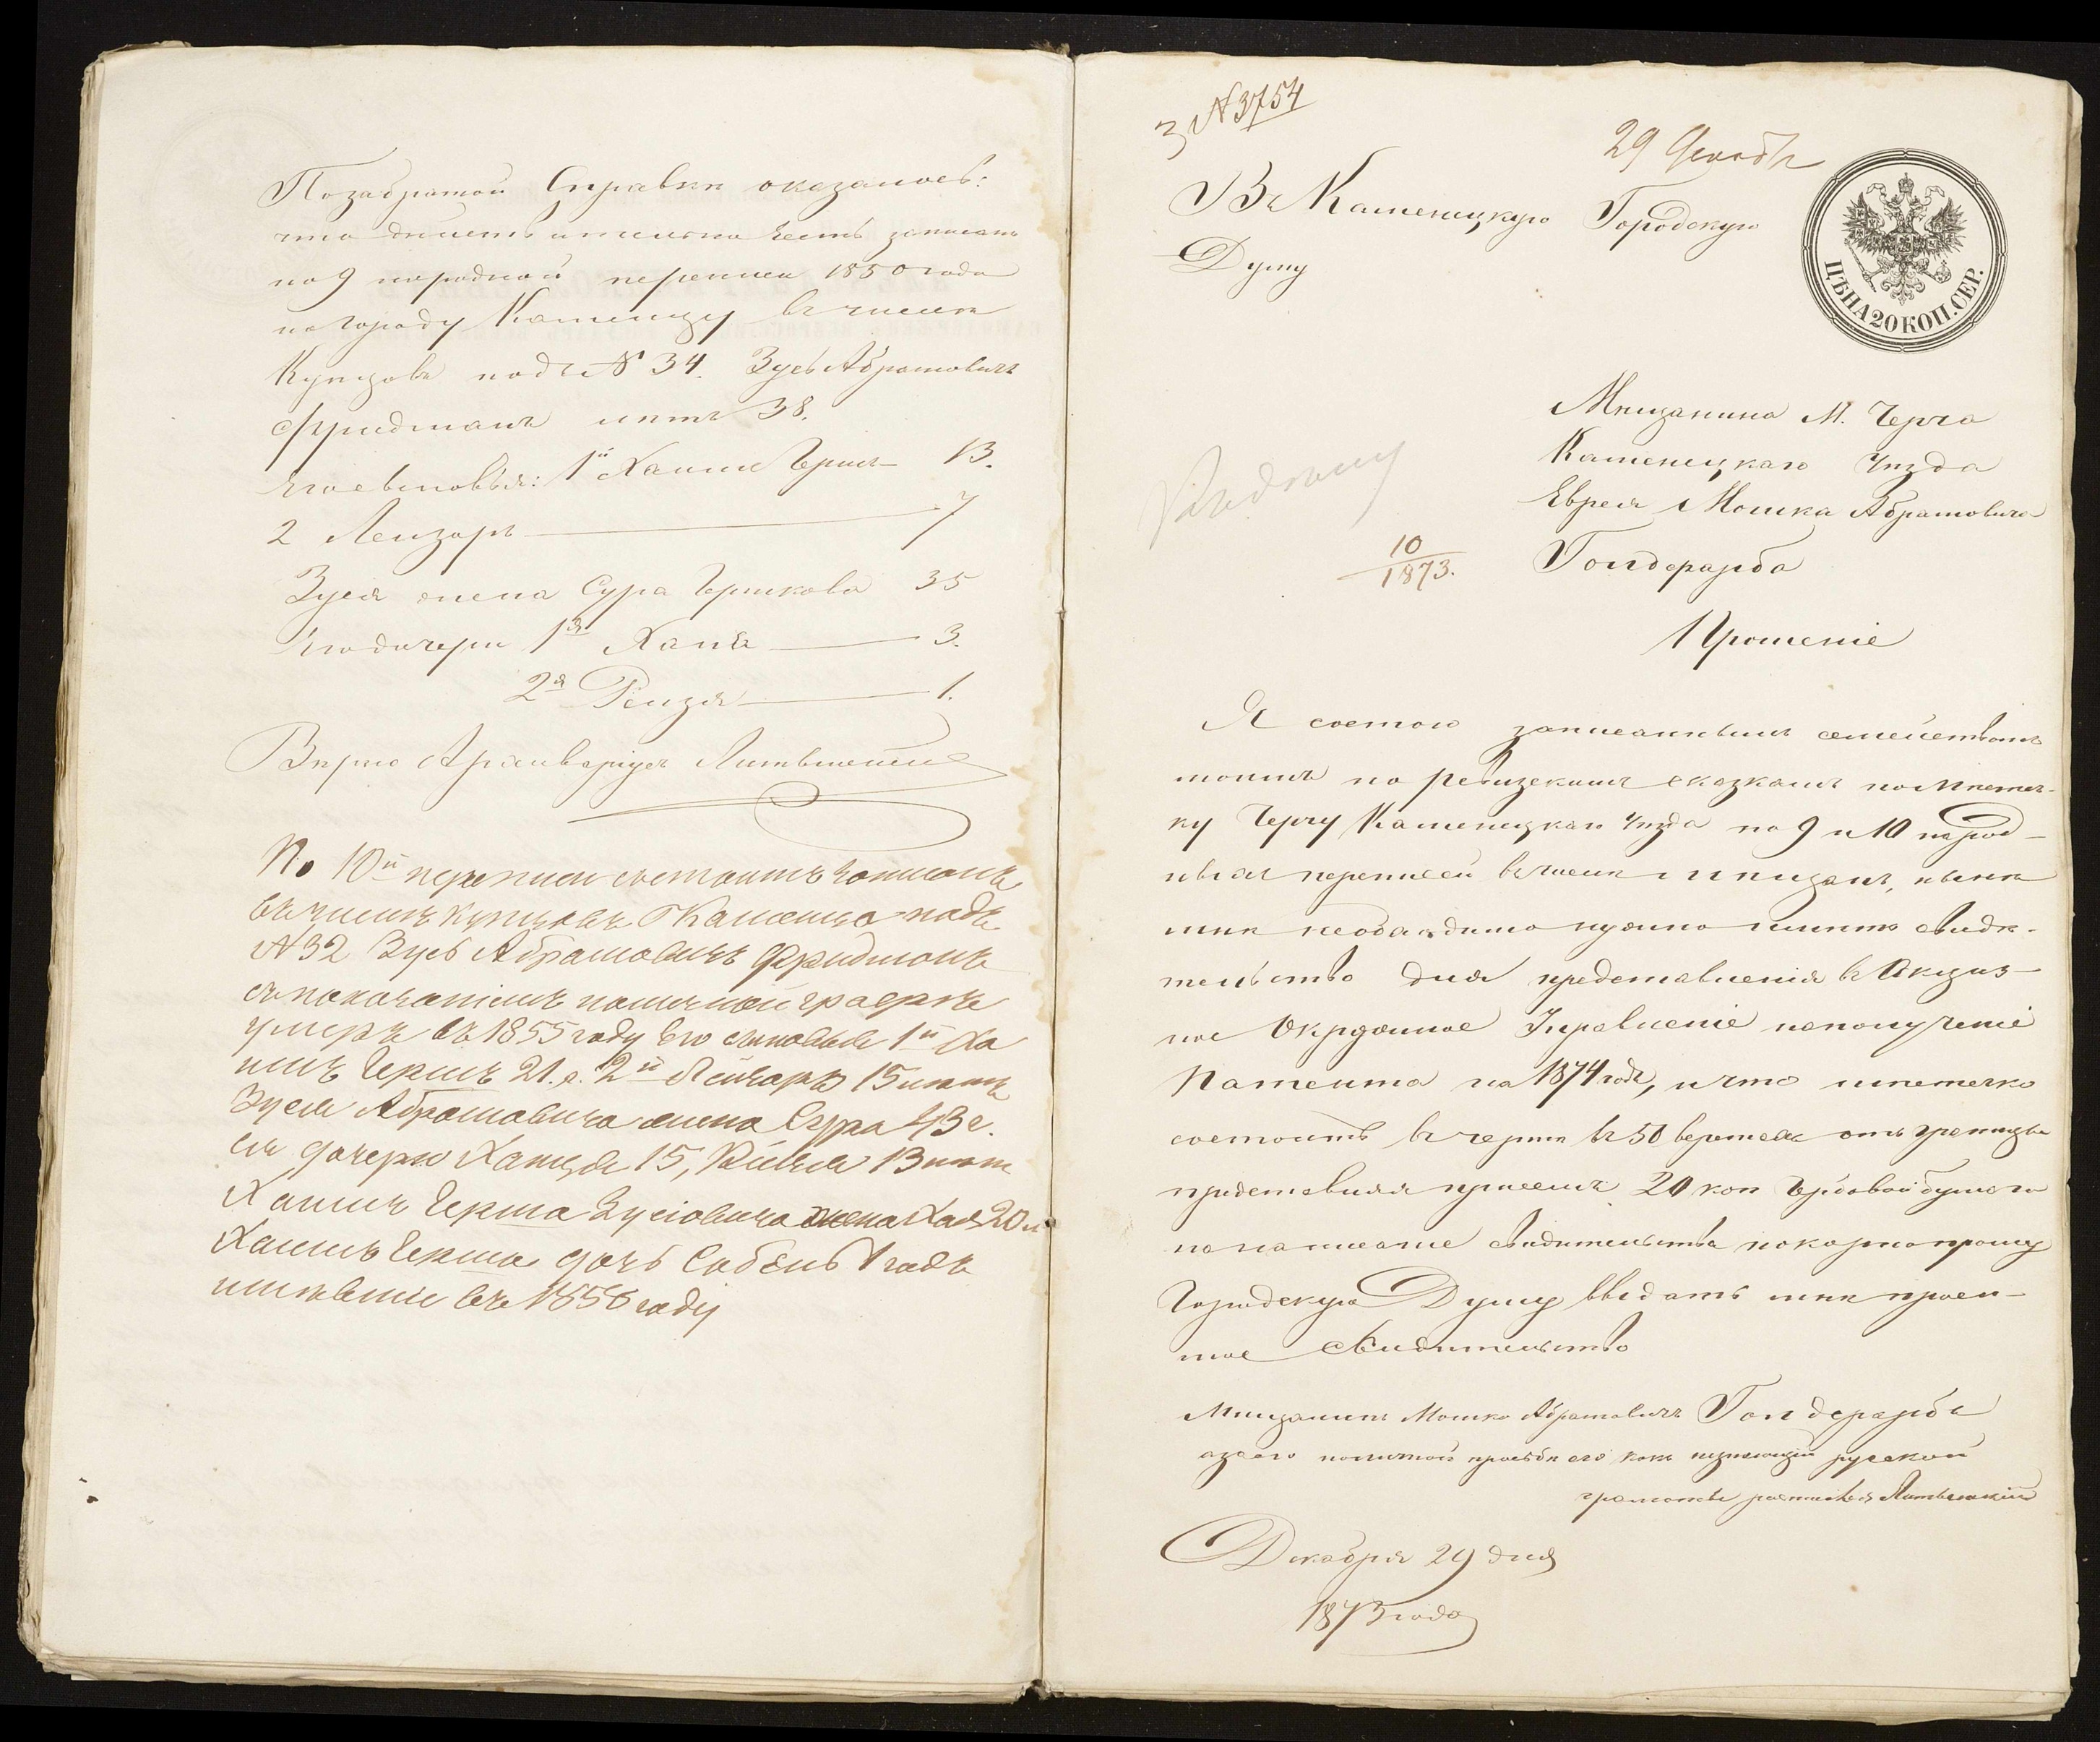 По забратой Справки оказалось:
что дѣйствительно есть записанъ
по 9 народной переписи 1850 года
по городу Каменцу въ числѣ
Купцовъ подъ № 34. Зусь Абрамовичъ
Фридманъ лѣтъ 38.
Его сыновья: 1й Хаимъ Гершъ 13.
2 Лейзоръ 7
Зуся жена Сура Гершкова 35
Его дочери 1я Ханя 3.
2я Рейзя 1.
Вѣрно Архиваріусъ
По 10й переписи состоитъ записанъ
въ числѣ купцовъ г Каменца подъ
№ 32 Зусь Абрамовичъ Фридманъ
съ показаніемъ по мужской графѣ
умеръ въ 1855 году его сыновья 1й Ха
имъ Гершъ 21. г. 2й Лейзоръ 15 лѣтъ
Зуся Абрамовича жена Сура 43 г.
ея дочери 15, 13 лѣтъ
Хаимъ Герша Зусіовича жена Хая 20 л
Хаимъ Герша дочь 1 годъ
1858 году
3 № 3754
29 Декабр
Въ Каменецкую Городскую
Думу
ЦѢНА 20 КОП. СЕР.
Мѣщанина М. Черча
Каменецкаго Уѣзда
Еврея Мошка Абрамовича
Голдфарба
10
1873.
Прошеніе
Я состою записаннымъ семействомъ
моимъ по ревизскимъ сказкамъ по Мѣстеч-
ку Черчу Каменецкаго Уѣзда по 9 и 10 народ-
ныхъ переписей въ числѣ мѣщанъ, нынѣ
мнѣ необходимо нужно имѣть свидѣ-
тельство для представленія въ Акциз-
ное Окружное Управленіе на полученіе
Патента на 1874 годъ, и что мѣстечко
состоитъ въ чертѣ въ 50 верстахъ отъ границы
представляя при семъ 20 коп Гербовой бумаги
на написаніе свидѣтельства покорно прошу
Городскую Думу выдать мнѣ просим-
мое свидѣтельство
Мѣщанинъ Мошко Абрамовичъ Голдфарбъ
а за его личной просьбы его какъ незнающій русской
грамоты росписался
Декабря 29 дня
1873 года